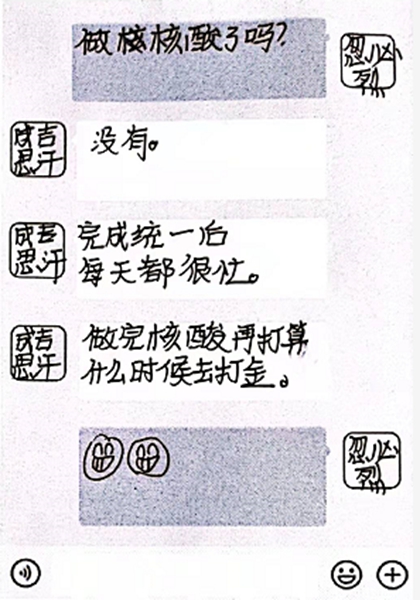 做核核酸了吗?
忽必
烈
成吉
思汗
没有。
成吉
思汗
完成统一后
每天都很忙。
成吉
思汗
做完核酸再打算
什么时候去打金。
忽必
烈